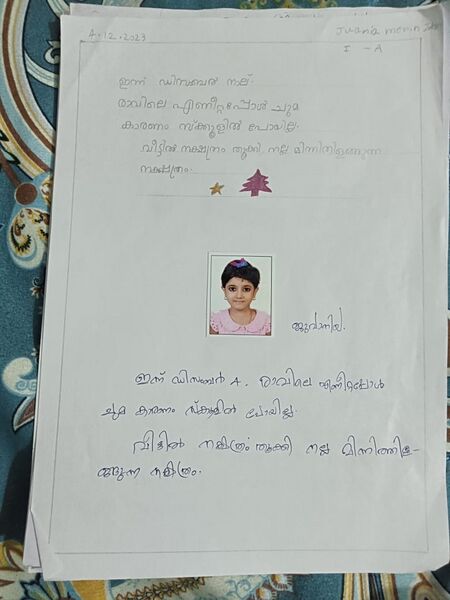 4.12.2023
I - A
ഇന്ന് ഡിസബർ നാല്.
രാവിലെ എണീറ്റപ്പോൾ ചുമ
കാരണം സ്ക്കൂളിൽ പോയില്ല.
വീട്ടിൽ നക്ഷത്രം തൂക്കി. നല്ല മിന്നിതിളങ്ങുന്ന
നക്ഷത്രം.
ജുവാനിയ.
ഇന്ന് ഡിസബർ 4. രാവിലെ എണീറ്റപ്പോൾ
ചുമ കാരണം സ്കൂളിൽ പോയില്ല.
വീട്ടിൽ നക്ഷത്രം തൂക്കി നല്ല മിന്നിത്തിള-
ങ്ങുന്ന നക്ഷത്രം.